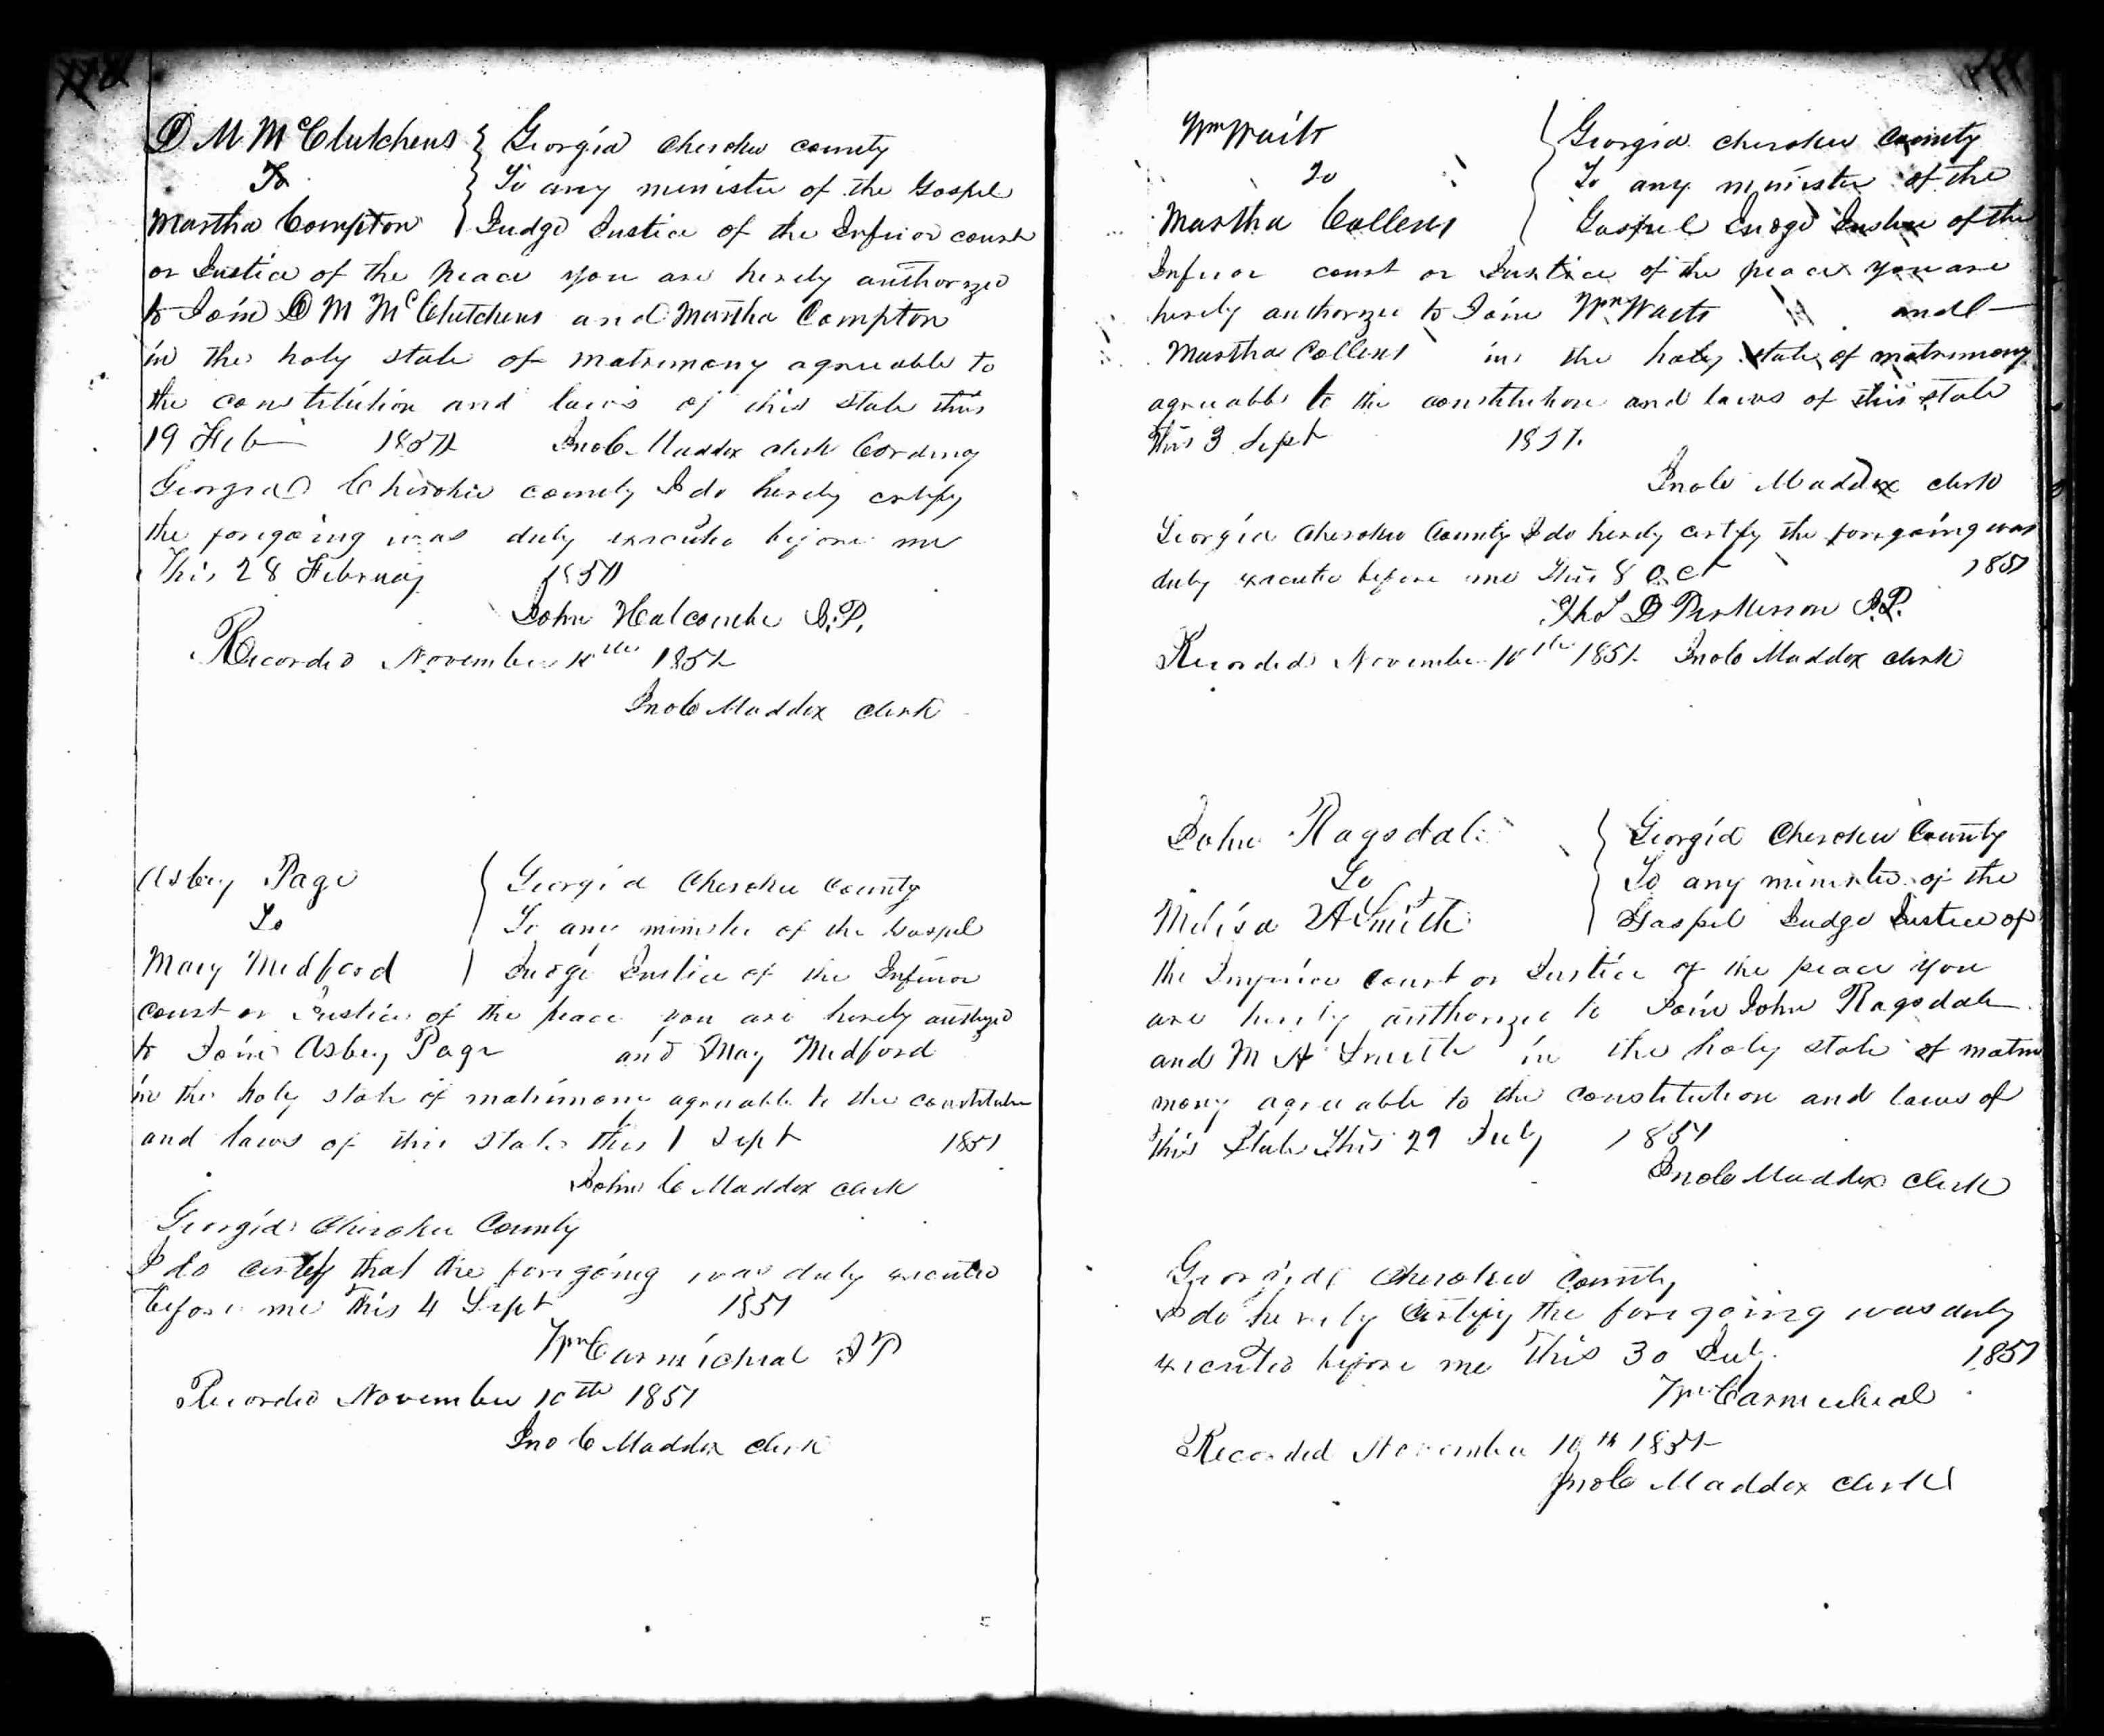 D M McClutchens
To
Martha Compton
Georgia Cherokee county
To any minister of the Gospel
Judge Justice of the Inferior court
or Justice of the Peace you are hereby authorized
to Join D M McClutchens and Martha Compton
in the holy state of matrimony agreeable to
the constitution and laws of this state this
19 Feb 1851 Jno C Maddox clerk
Georgia Cherokee county I do hereby certify
the foregoing was duly executed before me
This 28 February 1851
John Holcombe J.P.
Recorded November 10th 1851
Jno C Maddox clerk
Asbery Page
To
Mary Medford
Georgia Cherokee county
To any minister of the Gospel
Judge Justice of the Inferior
court or Justice of the peace you are hereby
to Join Asbery Page and May Medford
in the holy state of matrimony agreeable to the
and laws of this state this 1 Sept 1851
John C Maddox clerk
Georgia Cherokee County
I do certify that the foregoing was duly executed
before me this 4 Sept 1851
Wm Carmichael J P
Recorded November 10th 1851
Jno C Maddox clerk
Wm
To
Martha Collens
Georgia Cherokee County
To any minister of the
Gospel Judge Justice of the
Inferior court or Justice of the peace you are
hereby authorized to Join Wm and
Martha Collens in the holy state of matrimony
agreeable to the constitution and laws of this state
this 3 Sept 1851
Jno C Maddox clerk
Georgia Cherokee County I do hereby certify the foregoing was
duly executed before me this 8 Oct 1851
D Perkerson J.P.
Recorded November 10th 1851 Jno C Maddox clerk
John Ragsdale
To
Melisa A Smith
Georgia Cherokee County
To any minister of the
Gospel Judge Justice of
the Inferior court or Justice of the peace you
are hereby authorized to Join John Ragsdale
and M A Smith in the holy state of matri
mony agreeable to the constitution and laws of
this State This 29 July 1851
Jno C Maddox clerk
Georgia Cherokee County
I do hereby certify the foregoing was duly
executed before me this 30 July 1851
Wm Carmicheal
Recorded November 10th 1851
Jno C Maddox clerk